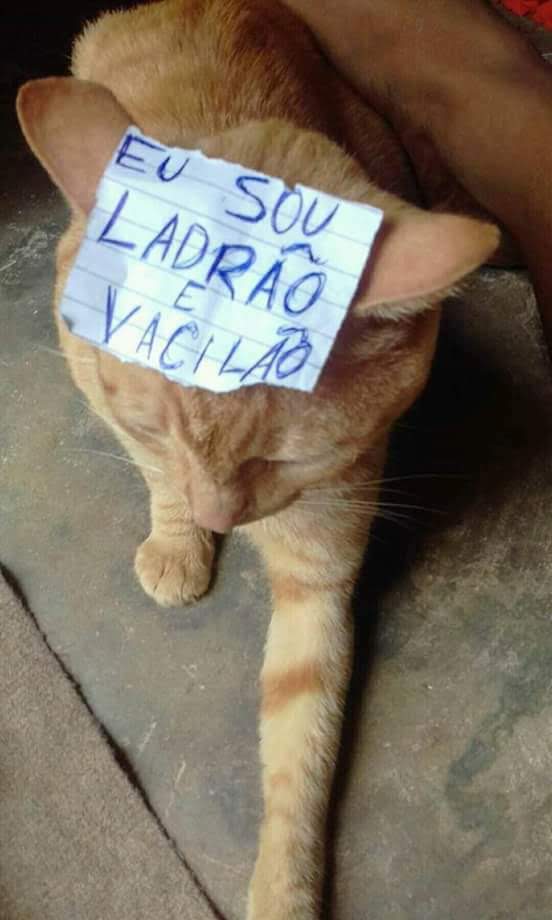 EU SOU
LADRÃO
E
VACILÃO